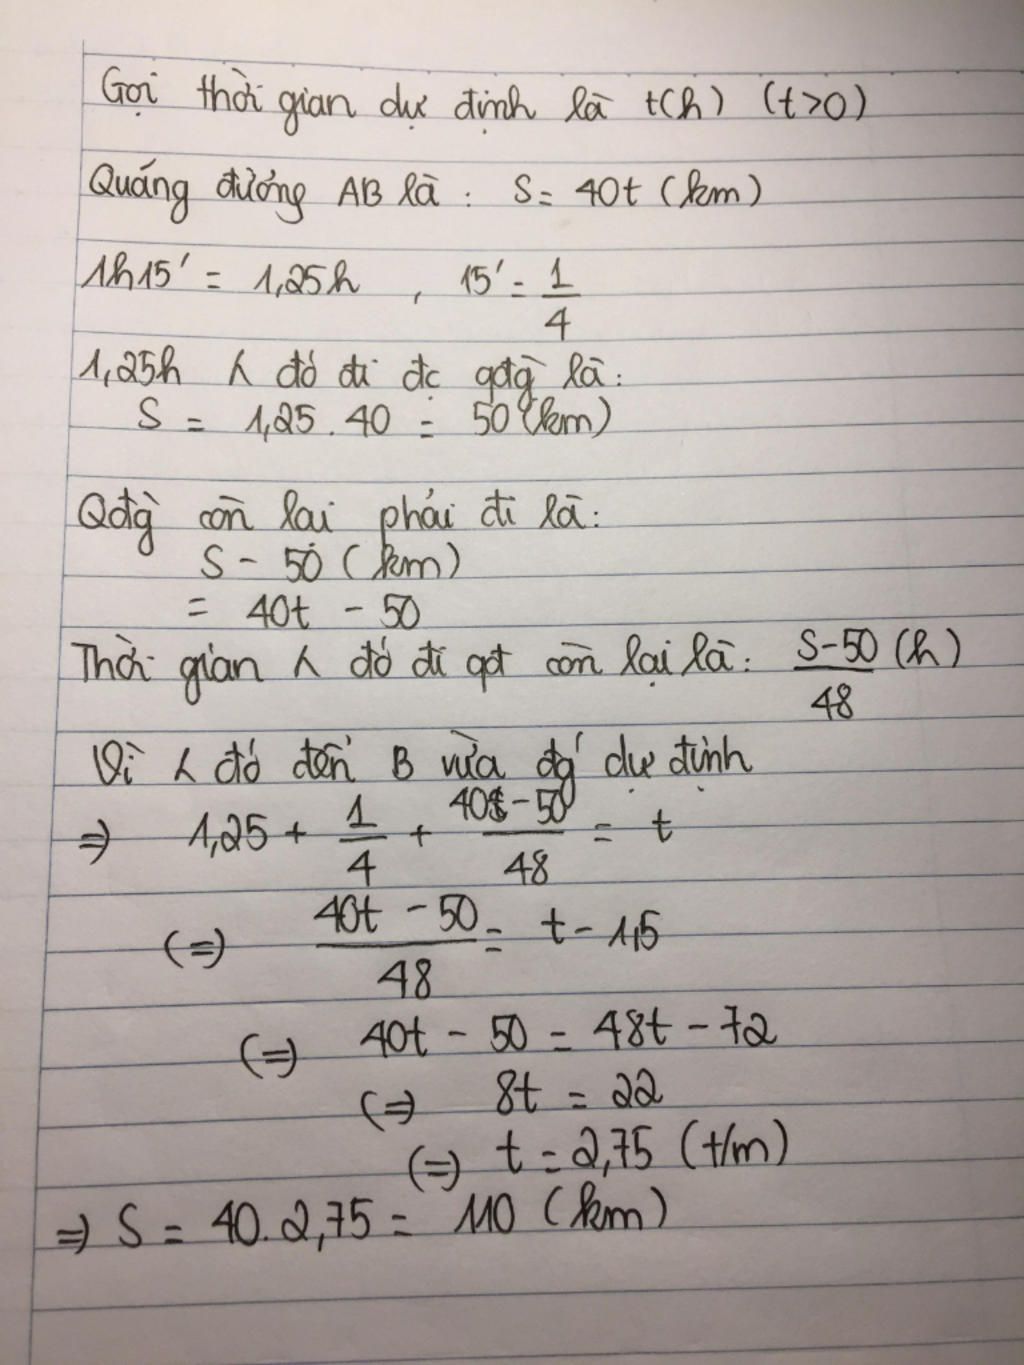 Gọi thời gian dự định là t(h) (t>0)
Quáng đướng AB là : S = 40t (km)
1h15' = 1,25h , 15' = 1/4
1,25h λ đó đi đc qđg̀ là:
S = 1,25 . 40 = 50 (km)
Qđg̀ còn lại phải đi là:
S - 50 (km)
= 40t - 50
Thời gian λ đó đi qđ còn lại là: S-50/48 (h)
Vì λ đó đến B vừa đg' dự định
=> 1,25 + 1/4 + 40t - 50/48 = t
(=) 40t - 50/48 = t - 1,5
(=) 40t - 50 = 48t - 72
(=) 8t = 22
(=) t = 2,75 (t/m)
=> S = 40. 2,75 = 110 (km)